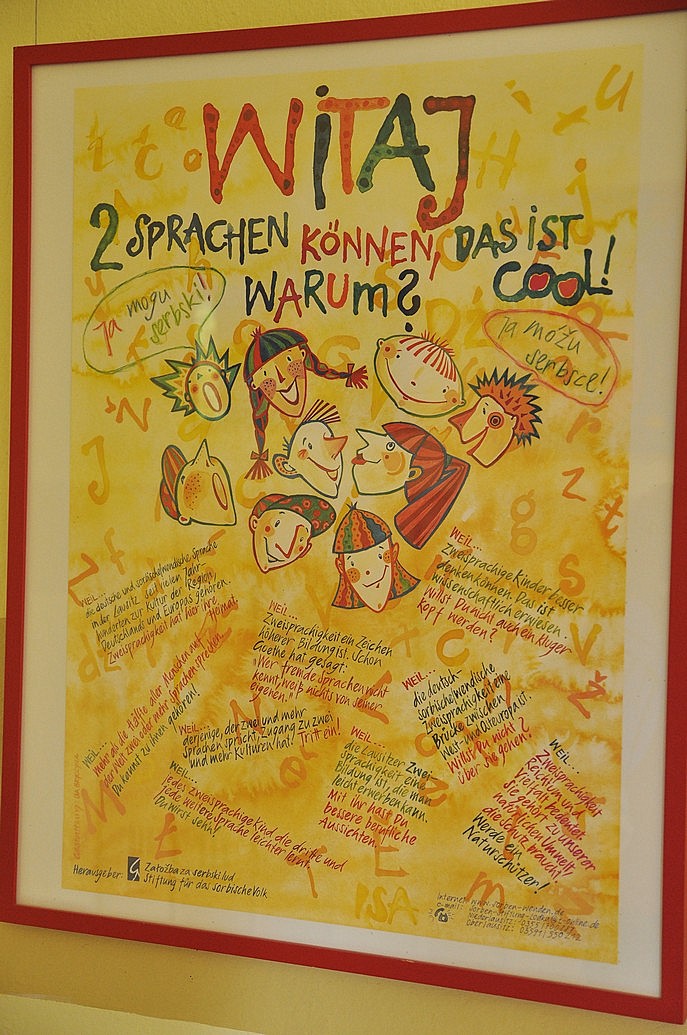 WITAJ
2 SPRACHEN KÖNNEN, DAS IST COOL!
WARUM?
Ja mogu
serbski!
Ja možu
serbsce!
WEIL...
die deutsche und sorbische/wendische Sprache
in der Lausitz seit vielen Jahr-
hunderten zur Kultur der Region,
Deutschlands und Europas gehören.
Zweisprachigkeit hat hier ihre
Heimat.
WEIL...
Zweisprachige Kinder besser
denken können. Das ist
wissenschaftlich erwiesen.
Willst Du nicht auch ein kluger
Kopf werden?
WEIL...
Zweisprachigkeit ein Zeichen
höherer Bildung ist. Schon
Goethe hat gesagt:
"Wer fremde Sprachen nicht
kennt, weiß nichts von seiner
eigenen."
WEIL...
mehr als die Hälfte aller Menschen auf
der Welt zwei oder mehr Sprachen sprechen.
Du kannst zu ihnen gehören!
WEIL...
derjenige, der zwei und mehr
Sprachen spricht, Zugang zu zwei
und mehr Kulturen hat! Tritt ein!
WEIL...
die deutsch-
sorbische/wendische
Zweisprachigkeit eine
Brücke zwischen
West- und Osteuropa ist.
Willst Du nicht
über sie gehen?
WEIL...
die Lausitzer Zwei-
sprachigkeit eine
Bildung ist, die man
leicht erwerben kann.
Mit ihr hast Du
bessere berufliche
Aussichten.
WEIL...
Zweisprachigkeit
Reichtum und
Vielfalt bedeutet.
Sie gehört zu unserer
natürlichen Umwelt,
die Schutz braucht.
Werde ein
Naturschützer!
WEIL...
jedes zweisprachige Kind die dritte und
jede weitere Sprache leichter lernt.
Du wirst sehn!
Herausgeber:
Załožba za serbski lud
Stiftung für das sorbische Volk
Internet: www.sorben-wenden.de
e-mail:
Niederlausitz:
Oberlausitz: